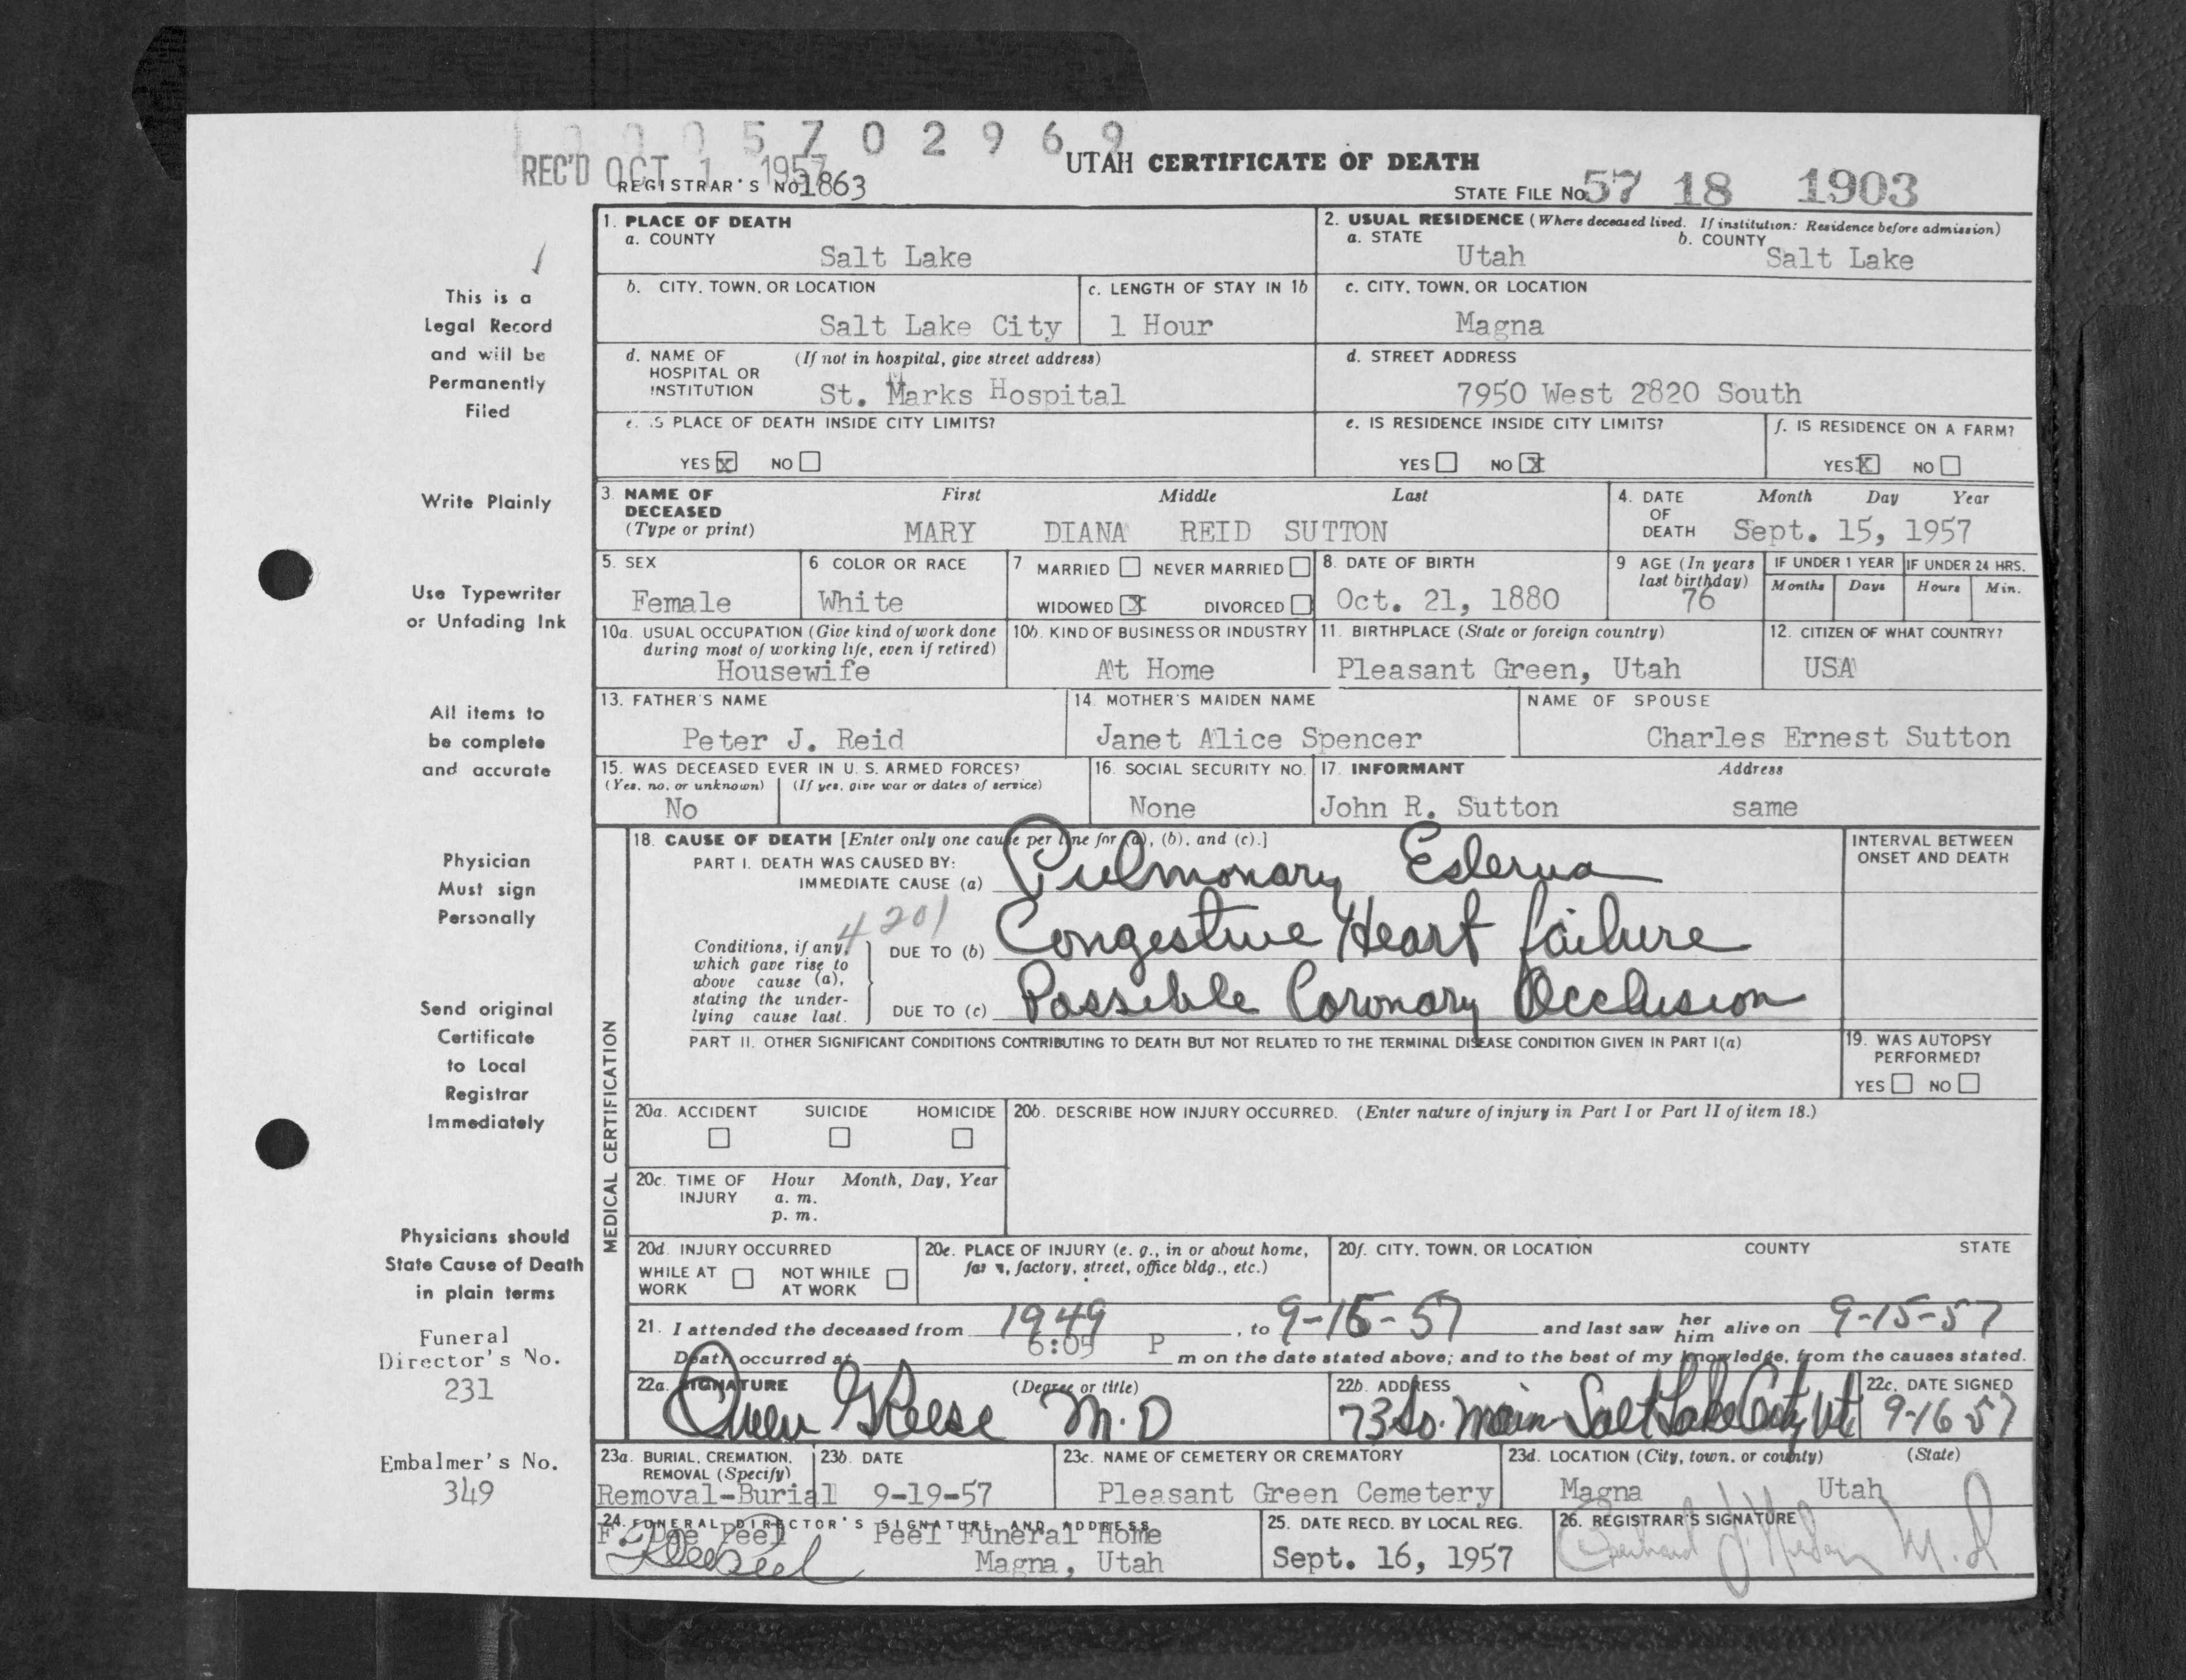 5 7 0 2 9 6 9
REC'D OCT 1 1957
UTAH CERTIFICATE OF DEATH
REGISTRAR'S NO. 1863
STATE FILE NO. 57 18 1903
This is a
Legal Record
and will be
Permanently
Filed
Write Plainly
Use Typewriter
or Unfading Ink
All items to
be complete
and accurate
Physician
Must sign
Personally
Send original
Certificate
to Local
Registrar
Immediately
Physicians should
State Cause of Death
in plain terms
Funeral
Director's No.
231
Embalmer's No.
349
1. PLACE OF DEATH
a. COUNTY
Salt Lake
2. USUAL RESIDENCE (Where deceased lived. If institution: Residence before admission)
a. STATE
Utah
b. COUNTY
Salt Lake
b. CITY, TOWN, OR LOCATION
Salt Lake City
c. LENGTH OF STAY IN 1b
1 Hour
c. CITY, TOWN, OR LOCATION
Magna
d. NAME OF (If not in hospital, give street address)
HOSPITAL OR
INSTITUTION
St. Marks Hospital
d. STREET ADDRESS
7950 West 2820 South
e. IS PLACE OF DEATH INSIDE CITY LIMITS?
YES X NO
e. IS RESIDENCE INSIDE CITY LIMITS?
YES NO X
f. IS RESIDENCE ON A FARM?
YES X NO
3. NAME OF First Middle Last
DECEASED
(Type or print)
MARY DIANA REID SUTTON
4. DATE Month Day Year
OF
DEATH Sept. 15, 1957
5. SEX
Female
6 COLOR OR RACE
White
7 MARRIED NEVER MARRIED
WIDOWED X DIVORCED
8. DATE OF BIRTH
Oct. 21, 1880
9 AGE (In years
last birthday)
76
IF UNDER 1 YEAR
Months Days
IF UNDER 24 HRS.
Hours Min.
10a. USUAL OCCUPATION (Give kind of work done
during most of working life, even if retired)
Housewife
10b. KIND OF BUSINESS OR INDUSTRY
At Home
11. BIRTHPLACE (State or foreign country)
Pleasant Green, Utah
12. CITIZEN OF WHAT COUNTRY?
USA
13. FATHER'S NAME
Peter J. Reid
14. MOTHER'S MAIDEN NAME
Janet Alice Spencer
NAME OF SPOUSE
Charles Ernest Sutton
15. WAS DECEASED EVER IN U. S. ARMED FORCES?
(Yes, no, or unknown) (If yes, give war or dates of service)
No
16. SOCIAL SECURITY NO.
None
17. INFORMANT Address
John R. Sutton same
MEDICAL CERTIFICATION
18. CAUSE OF DEATH [Enter only one cause per line for (a), (b), and (c).]
PART I. DEATH WAS CAUSED BY:
IMMEDIATE CAUSE (a) Pulmonary Edema
4201
Conditions, if any,
which gave rise to
above cause (a),
stating the under-
lying cause last.
DUE TO (b) Congestive Heart failure
DUE TO (c) Possible Coronary Occlusion
INTERVAL BETWEEN
ONSET AND DEATH
PART II. OTHER SIGNIFICANT CONDITIONS CONTRIBUTING TO DEATH BUT NOT RELATED TO THE TERMINAL DISEASE CONDITION GIVEN IN PART I(a)
19. WAS AUTOPSY
PERFORMED?
YES NO
20a. ACCIDENT SUICIDE HOMICIDE
20b. DESCRIBE HOW INJURY OCCURRED. (Enter nature of injury in Part I or Part II of item 18.)
20c. TIME OF Hour Month, Day, Year
INJURY a. m.
p. m.
20d. INJURY OCCURRED
WHILE AT NOT WHILE
WORK AT WORK
20e. PLACE OF INJURY (e. g., in or about home,
farm, factory, street, office bldg., etc.)
20f. CITY, TOWN, OR LOCATION COUNTY STATE
21. I attended the deceased from 1949, to 9-15-57 and last saw her him alive on 9-15-57
Death occurred at 6:05 P m on the date stated above; and to the best of my knowledge, from the causes stated.
22a. SIGNATURE (Degree or title)
Owen G Reese M.D
22b. ADDRESS
73 So. Main Salt Lake City, Ut.
22c. DATE SIGNED
9-16 57
23a. BURIAL, CREMATION,
REMOVAL (Specify)
Removal-Burial
23b. DATE
9-19-57
23c. NAME OF CEMETERY OR CREMATORY
Pleasant Green Cemetery
23d. LOCATION (City, town, or county) (State)
Magna Utah
24. FUNERAL DIRECTOR'S SIGNATURE AND ADDRESS
F. Dee Peel Peel Funeral Home
Magna, Utah
25. DATE RECD. BY LOCAL REG.
Sept. 16, 1957
26. REGISTRAR'S SIGNATURE
M.D